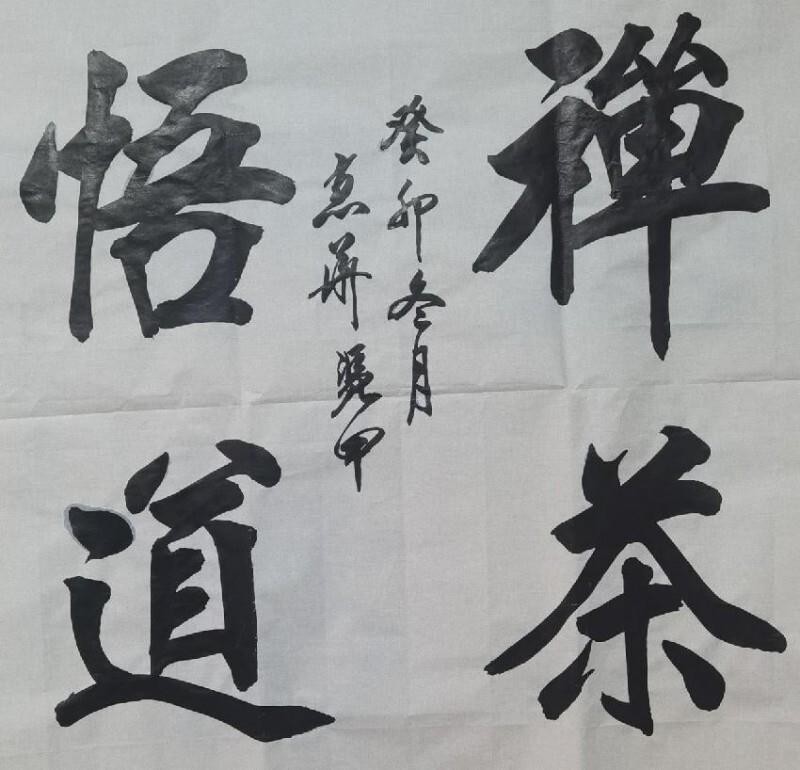 禪茶
悟道
癸卯冬月